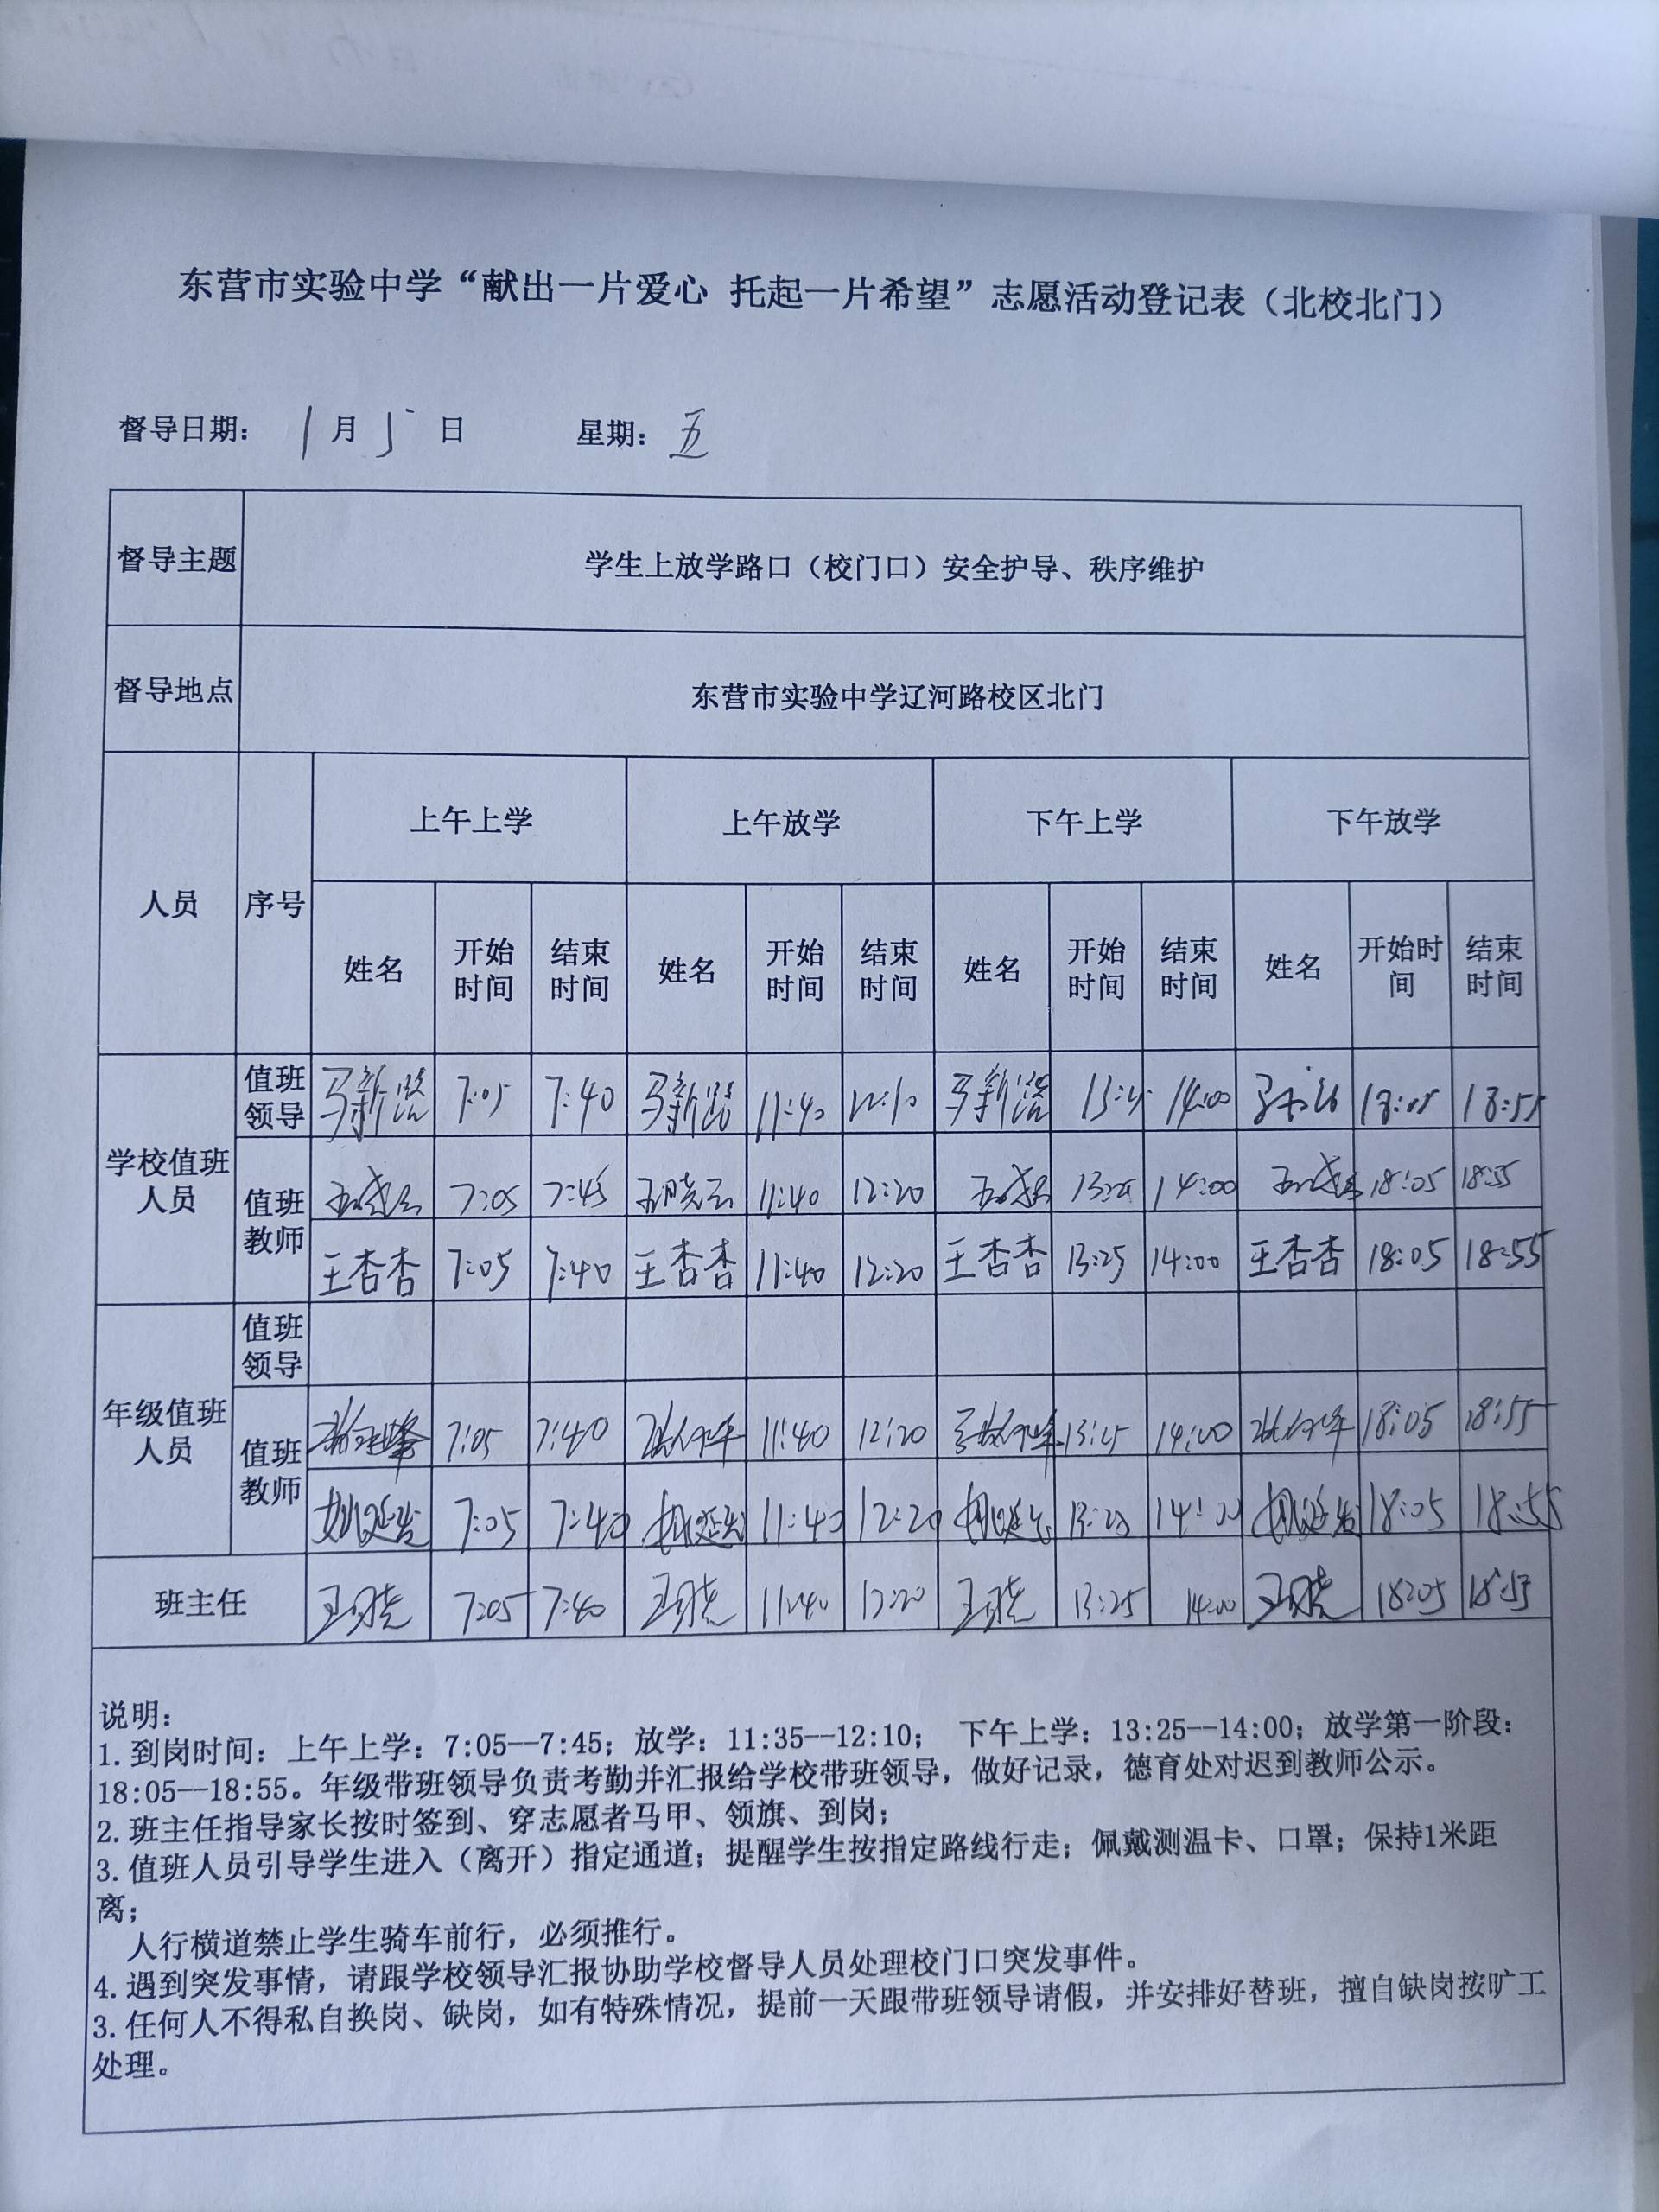 东营市实验中学“献出一片爱心 托起一片希望”志愿活动登记表（北校北门）
督导日期： 1 月 5 日 星期：五
督导主题 学生上放学路口（校门口）安全护导、秩序维护
督导地点 东营市实验中学辽河路校区北门
人员 序号 上午上学 上午放学 下午上学 下午放学
姓名 开始时间 结束时间 姓名 开始时间 结束时间 姓名 开始时间 结束时间 姓名 开始时间 结束时间
学校值班人员
值班领导 7:05 7:40 11:40 14:00 18:05 18:55
值班教师 7:05 7:45 11:40 12:20 14:00 18:05 18:55
王杏杏 7:05 7:40 王杏杏 11:40 12:20 王杏杏 13:25 14:00 王杏杏 18:05 18:55
年级值班人员
值班领导
值班教师 7:05 7:40 11:40 12:20 13:25 14:00 18:05 18:55
7:05 7:40 11:40 12:20 14:00 18:05 18:55
班主任 7:05 7:40 11:40 12:20 13:25 14:00 18:05
说明：
1.到岗时间：上午上学：7:05--7:45；放学：11:35--12:10； 下午上学：13:25--14:00；放学第一阶段：
18:05--18:55。年级带班领导负责考勤并汇报给学校带班领导，做好记录，德育处对迟到教师公示。
2.班主任指导家长按时签到、穿志愿者马甲、领旗、到岗；
3.值班人员引导学生进入（离开）指定通道；提醒学生按指定路线行走；佩戴测温卡、口罩；保持1米距
离；
人行横道禁止学生骑车前行，必须推行。
4.遇到突发事情，请跟学校领导汇报协助学校督导人员处理校门口突发事件。
3.任何人不得私自换岗、缺岗，如有特殊情况，提前一天跟带班领导请假，并安排好替班，擅自缺岗按旷工
处理。